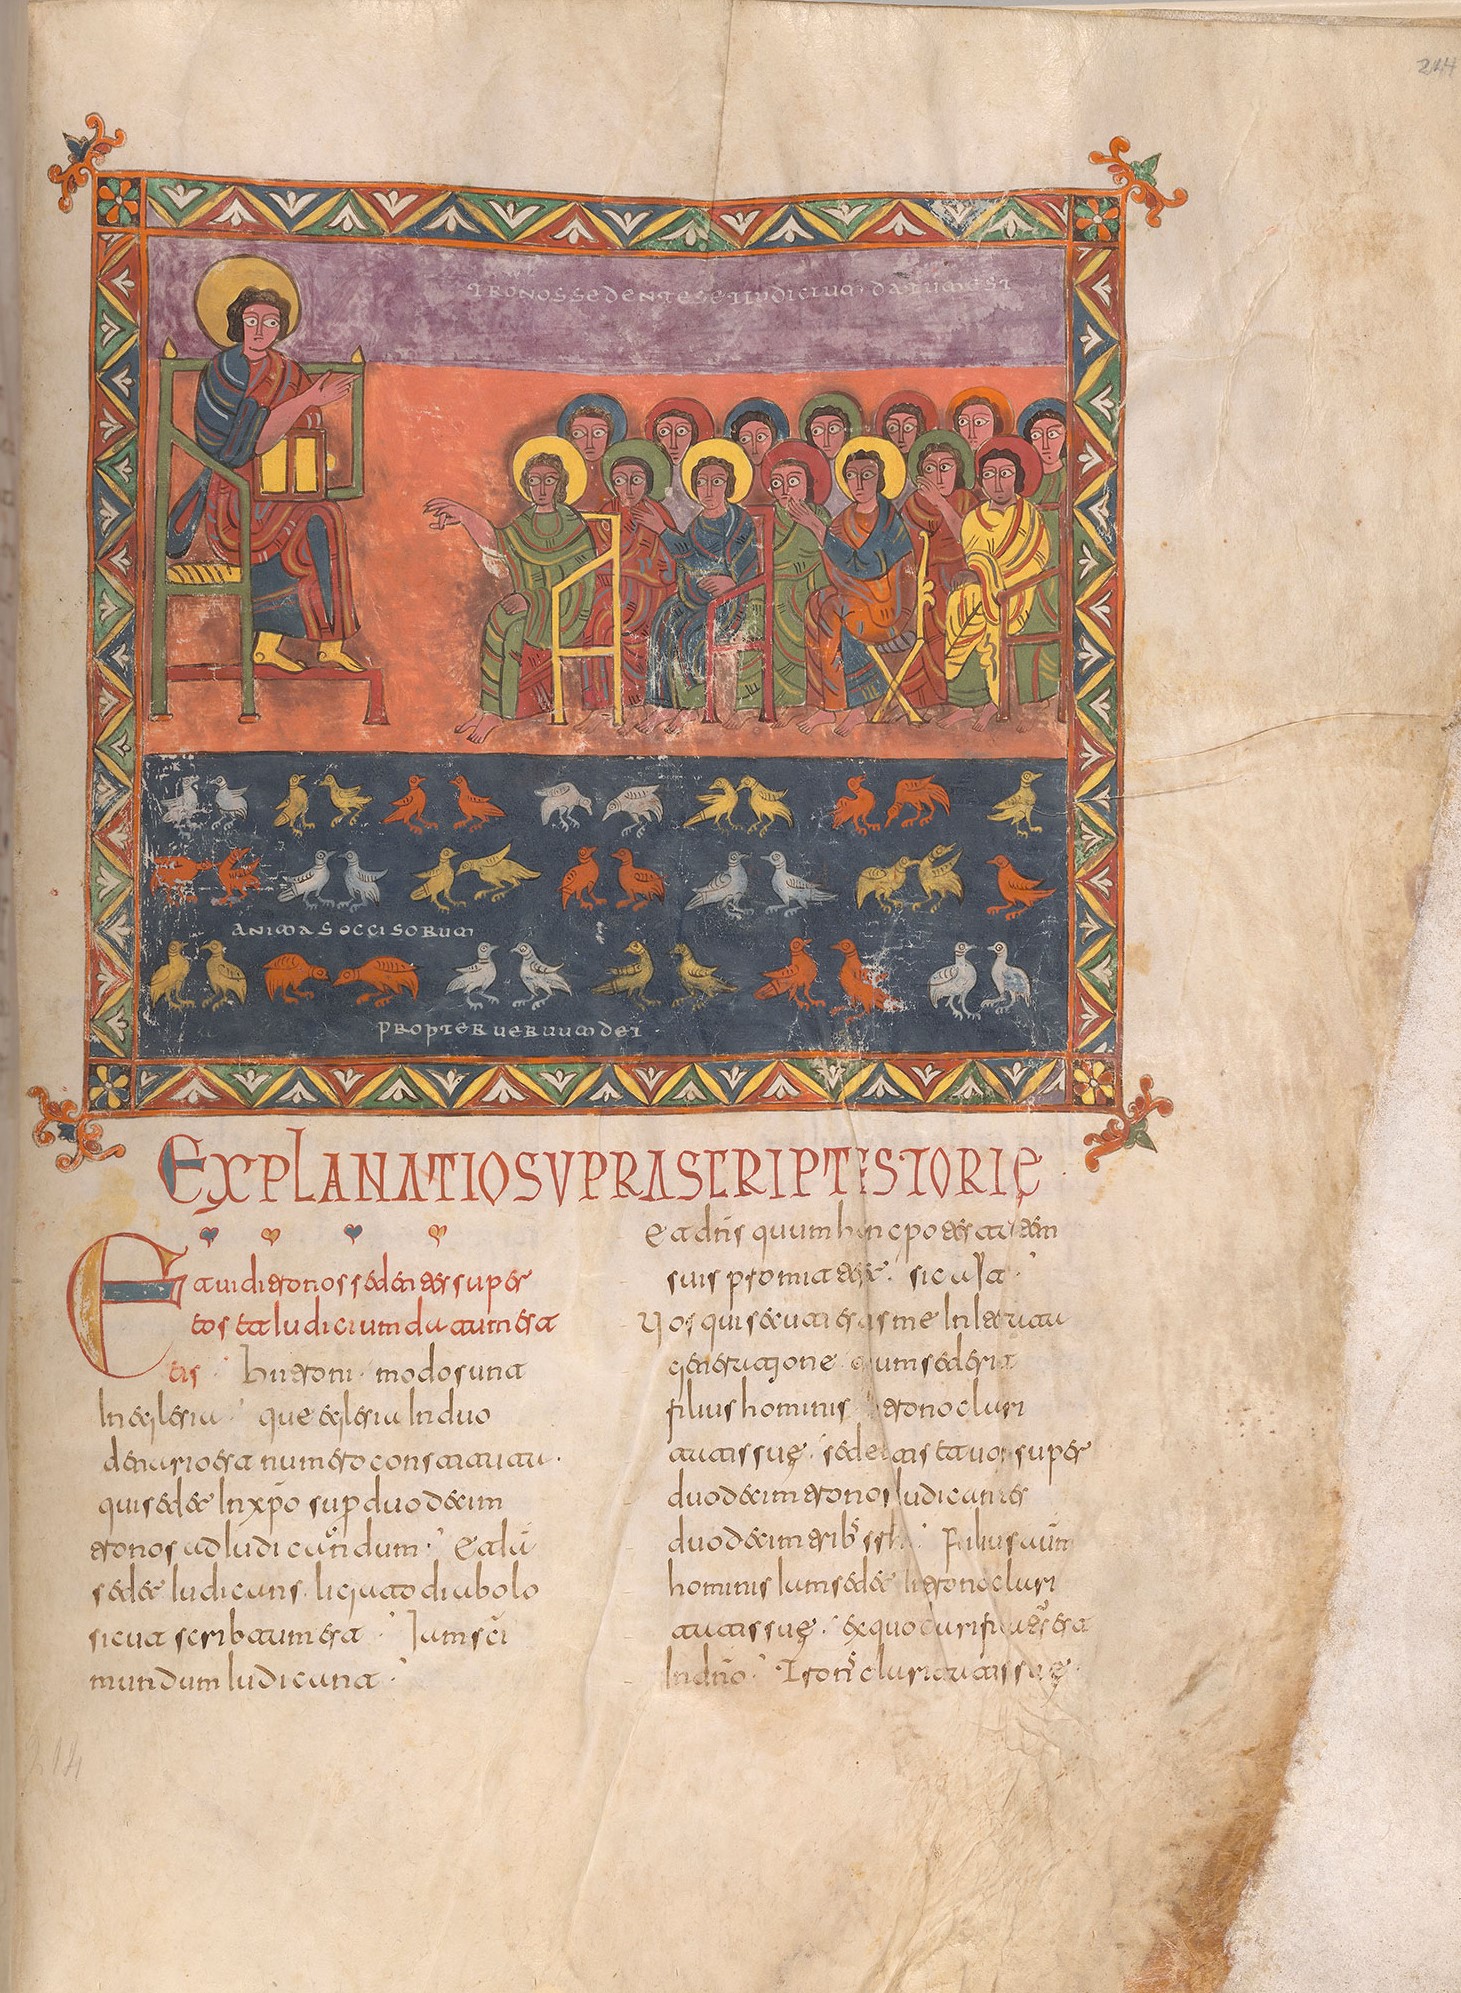 244
TRONOS SEDENTES ET IUDICIUM · DATUM EST
ANIMAS OCCISORUM
PROPTER UERUUM DEI ·
EXPLANATIO SUPRASCRIPTE STORIE
Et uidi tronos sedentes super
eos et iudicium datum est
eis : Hii troni · modo sunt
in eglesia : que eglesia in duo
denario est numero constituta ·
qui sedet in xpo sup duodecim
tronos ad iudicandum : Et iam
sedet iudicans · ligato diabolo
sicut scribtum est : Iam sci
mundum iudicant :
Et a dns quum hinc potestatem
suis promiteret : sicut :
Uos qui sequti estis me in
generatione quum sederit
filius hominis in trono clari
tatis suę · sedebitis et uos super
duodecim tronos iudicantes
duodecim tribs srhl : Filius autm
hominis iam sedet in trono clari
tatis suę : ex quo clarificatus est
in dno : claritatis suę ·
214